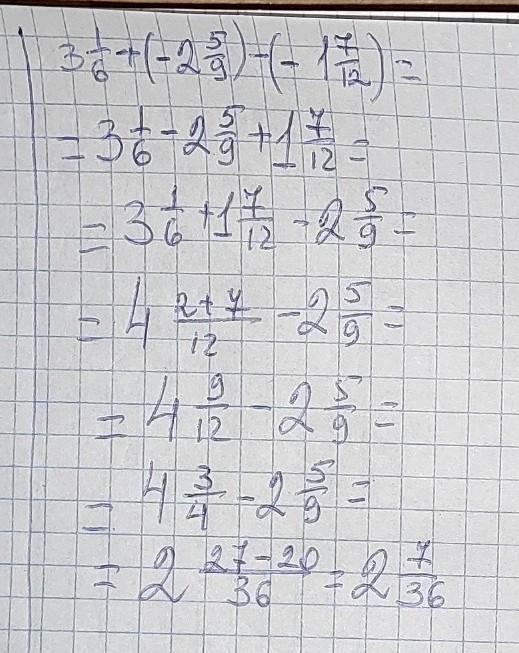 3 1/6 + (- 2 5/9) - (- 1 7/12) =
= 3 1/6 - 2 5/9 + 1 7/12 =
= 3 1/6 + 1 7/12 - 2 5/9 =
= 4 2+7/12 - 2 5/9 =
= 4 9/12 - 2 5/9 =
= 4 3/4 - 2 5/9 =
= 2 27-20/36 = 2 7/36